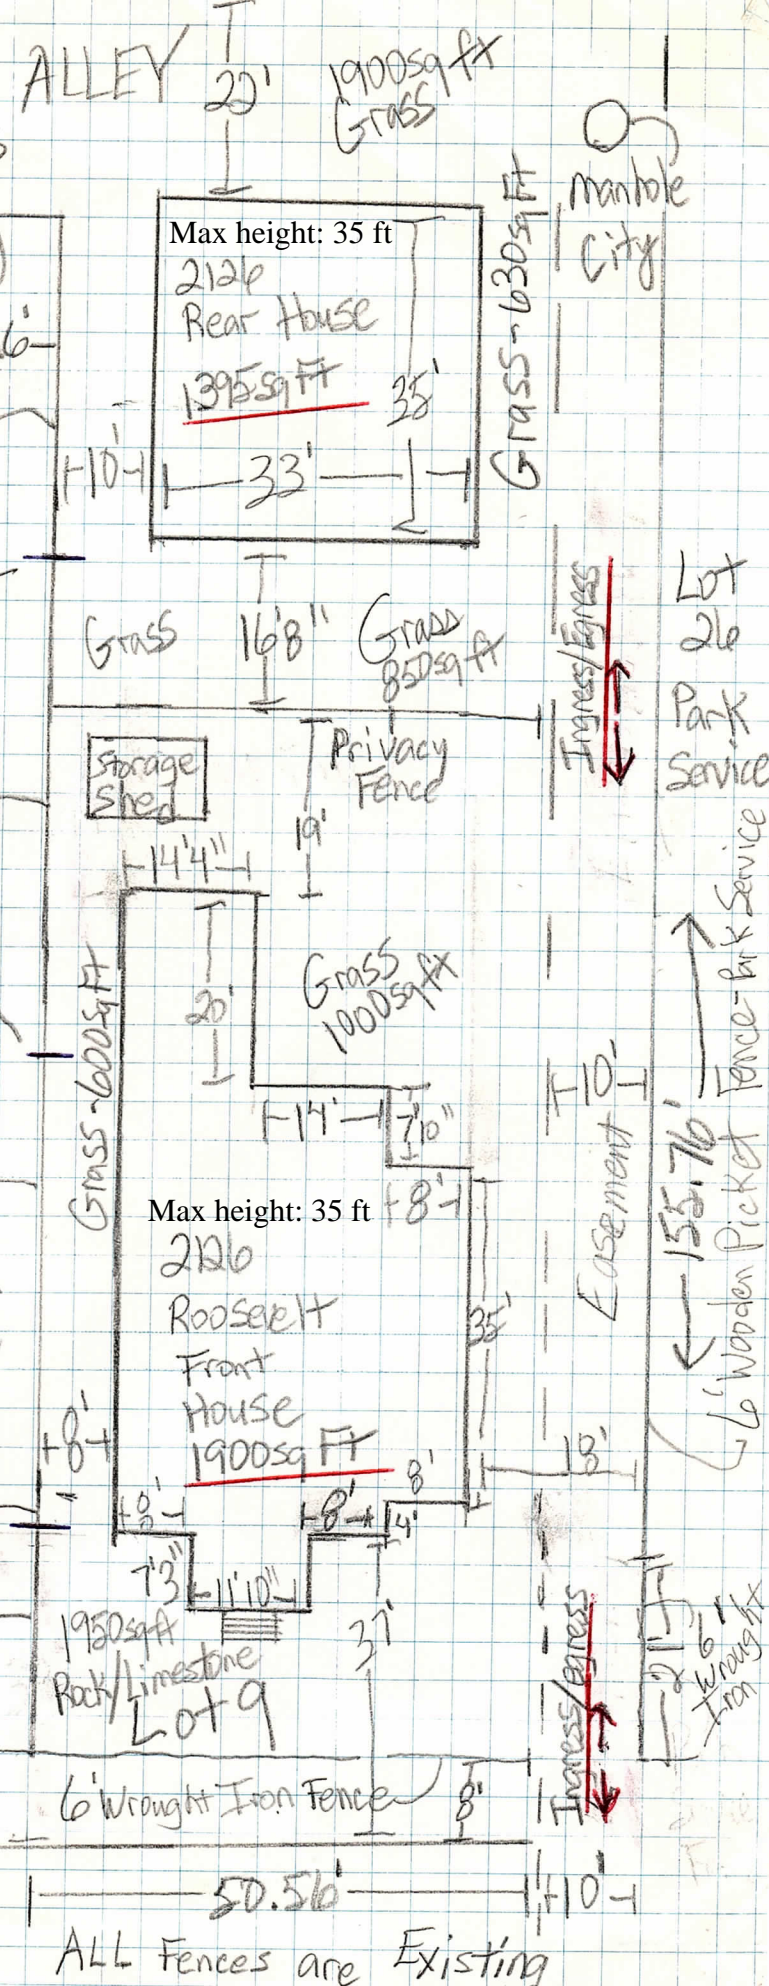 ALLEY
22'
1900sq ft
Grass
manhole
City
Max height: 35 ft
2126
Rear House
1395sq Ft
35'
33'
10'
6'
Grass-630sq Ft
Grass
16'8"
Grass
850sq ft
Ingress/Egress
Lot
26
Park
Service
Storage
Shed
Privacy
Fence
19'
14'4"
20'
Grass
1000sq ft
Grass-600sq Ft
14'
7'10"
8'
10'
Easement
155.76'
6' Wooden Picket Fence-Park Service
Max height: 35 ft
2126
Roosevelt
Front
House
1900sq Ft
35'
8'
18'
8'
8'
8'
4'
7'3"
11'10"
37'
21'
6'
Wrought
Iron
1950sqft
Rock/Limestone
Lot 9
Ingress/egress
6' Wrought Iron Fence
8'
50.56'
10'
ALL Fences are Existing